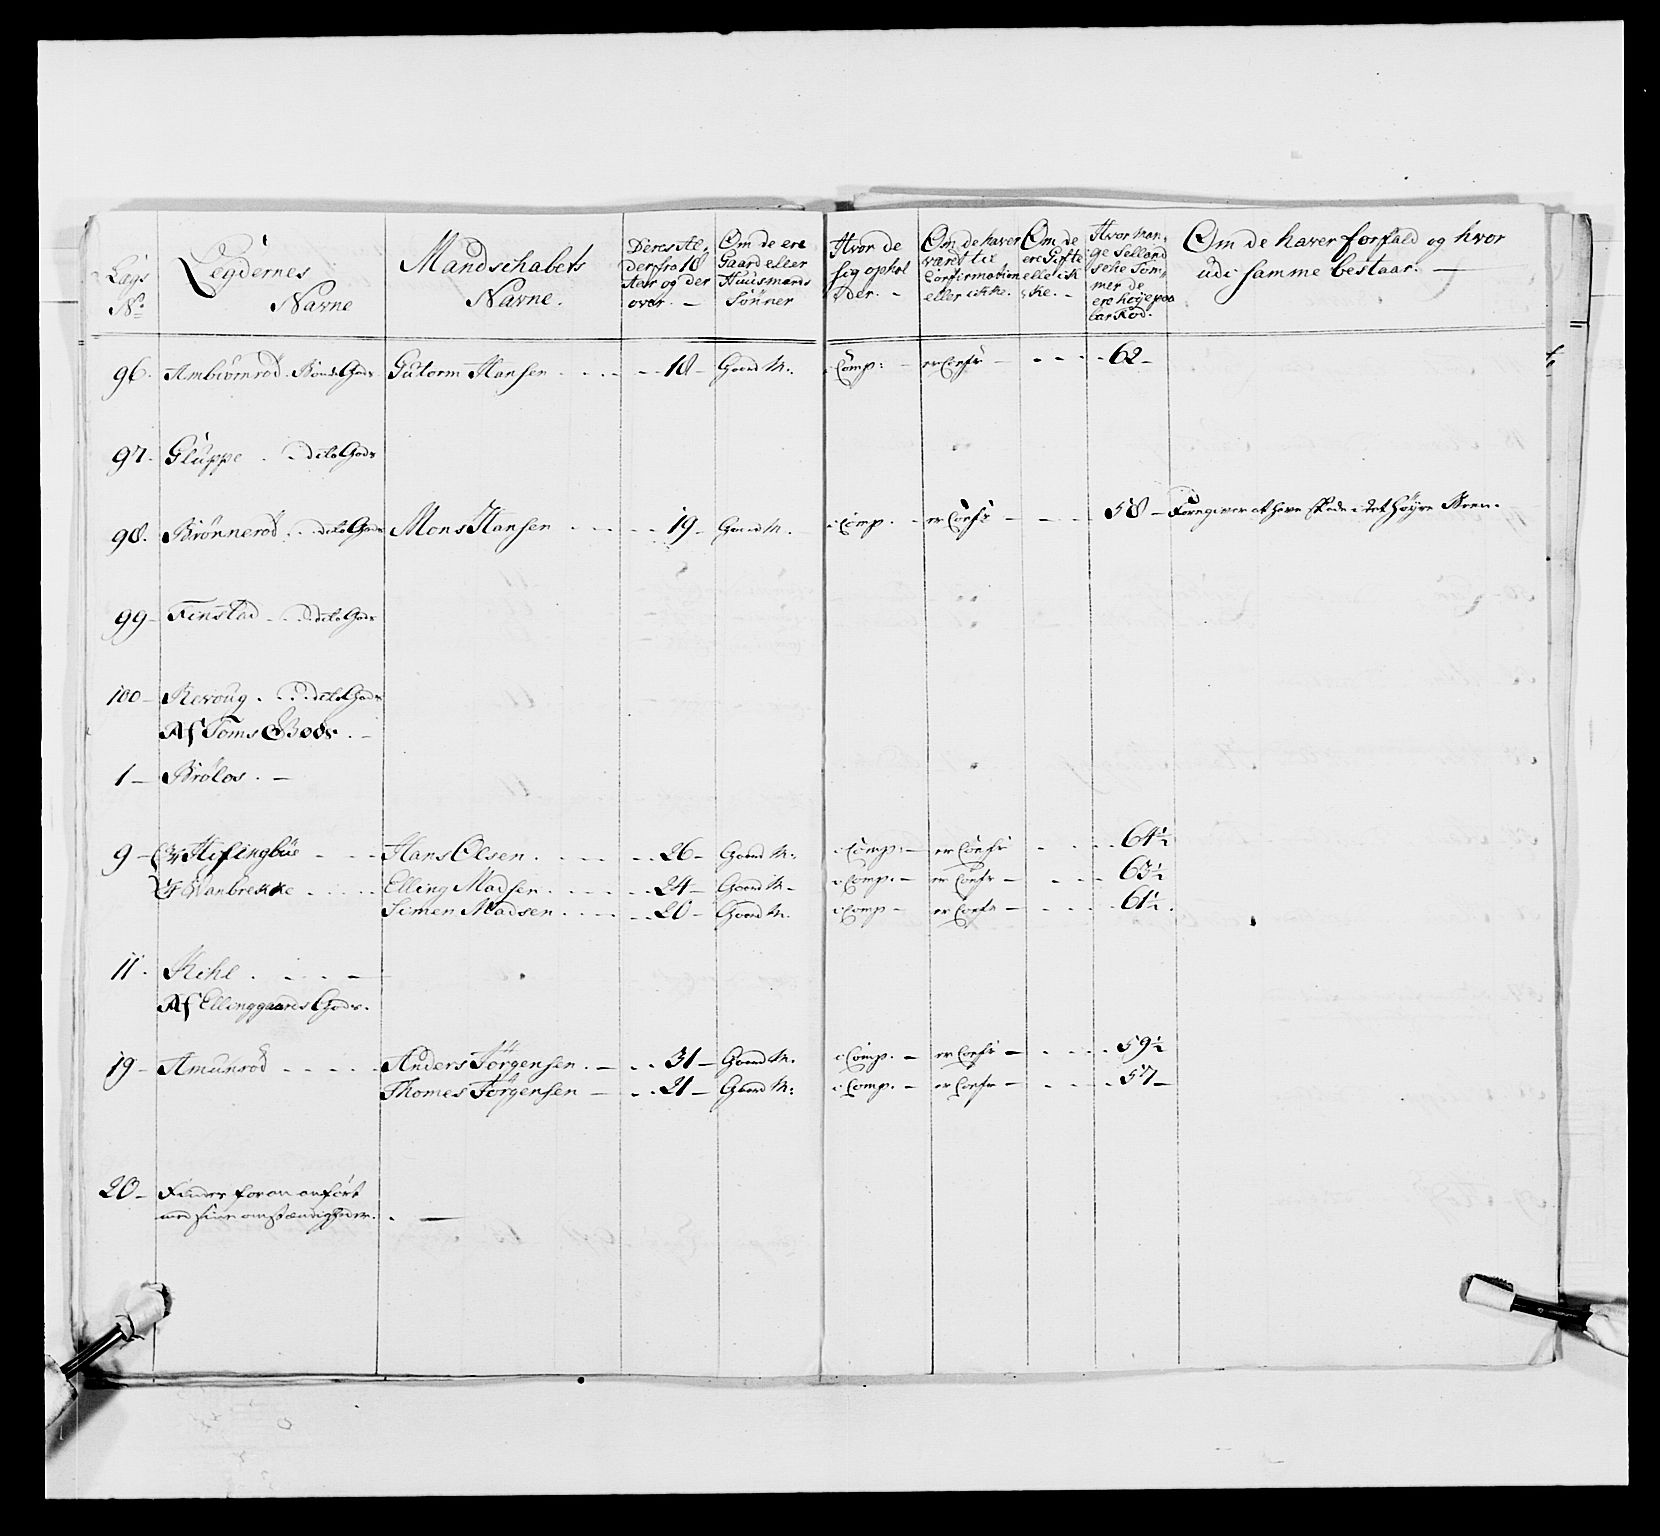 Lægs No
Legdernes Navne
Mandschabets Navne.
Deres Alder fra 18 Aar og der over. —
Om de ere Gaard eller Huusmands Sönner
Hvor de sig opholder. -
Om de haver været til Confirmation eller ikke.
Om de ere Gifte elle ikke. -
Hvor mange Sellandsche Tommer de ere höye paa bar Fod.
Om de haver forfald og hvor udi samme bestaar. —
96. Ambiörnröd. Bönd. Gods Gutorm Hansen 18 - Gaard M: i Comp: - er Confr — 62 —
97. Gluppe . . Dito Gods
98. Brönneröd . . dito Gods Mons Hansen 19 - Gaard M. i Comp. - er Confr — 58 — Foregiver at have skade i det höyre Been.
99 — Finstad . . dito Gods
100 — Revoug . . . dito Gods
Af Toms Gods . —
1 — Brölos . —
9 — Hesingbüe Hans Olsen 26 - Gaard M: i Comp: - er Confr 64½
Elling Madsen 24 - Gaard M - i Comp. - er Confr — 63½
Simen Madsen 20 - Gaard M. i Comp — er Confr — 61½
11. Kihl
Af Ellinggaards Gods.
19 — Amunröd Anders Jörgensen . — 31 — Gaard M. i Comp. — er Confr — 59½
Thomes Jörgensen — 21 — Gaard M: i Comp. — er Confr — 57 —
20 — Findes foran anfört
med sine omstændigheder. . —